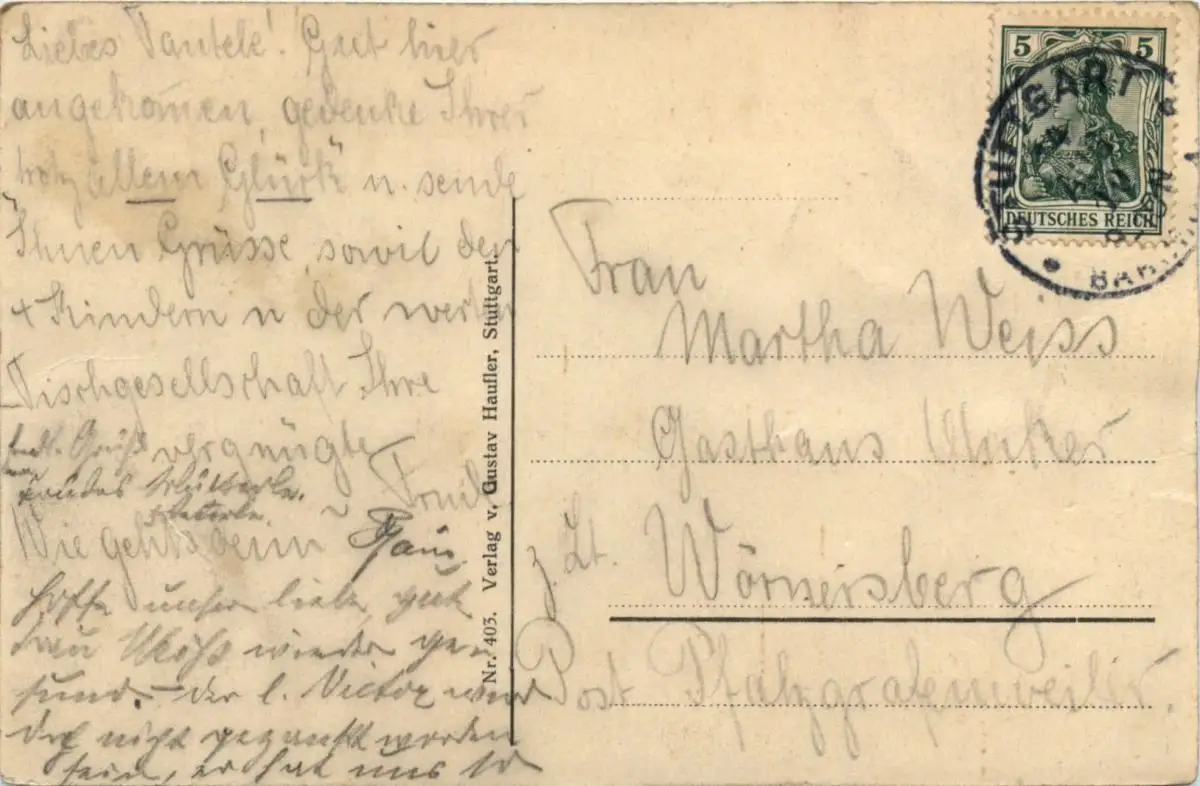 Liebes Tantele! Gut hier
angekommen, gedenke Ihrer
trotz allem "Glück" u. sende
Ihnen Grüsse, sowie den
4 Kindern u der werten
Tischgesellschaft Ihre
vergnügte
Trudl
Wie gehts beim
hoffe unsere liebe gute
Frau Weiss wieder ge-
sund. – der l. Victor wird
doch nicht gezankt worden
sein, er hat uns so
Nr. 403. Verlag v. Gustav Haufler, Stuttgart.
5 5
DEUTSCHES REICH
STUTTGART
Frau
Martha Weiss
Gasthaus Anker
z. Zt. Wörnersberg
Post Pfalzgrafenweiler.